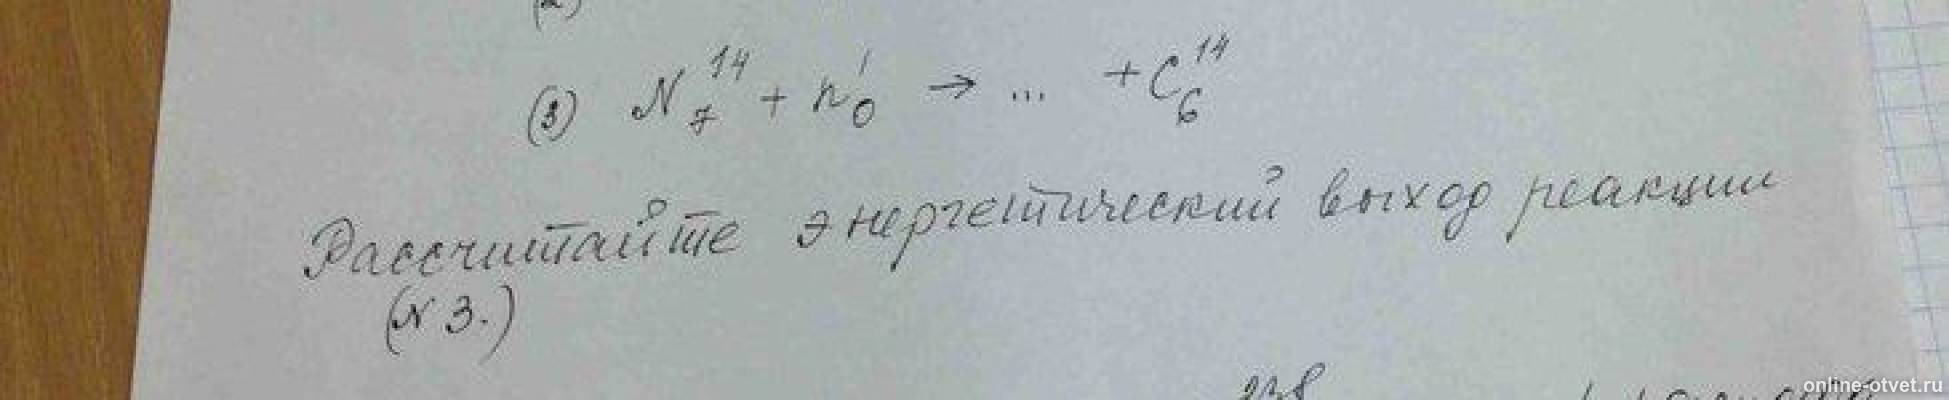 (3) N₇¹⁴ + n₀¹ → ... + C₆¹⁴
Рассчитайте энергетический выход реакции
(N 3.)
238
online-otvet.ru